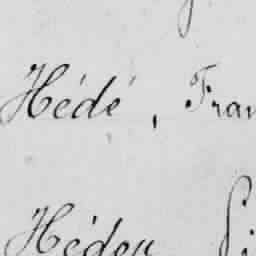 Hédé, Fran
Héden